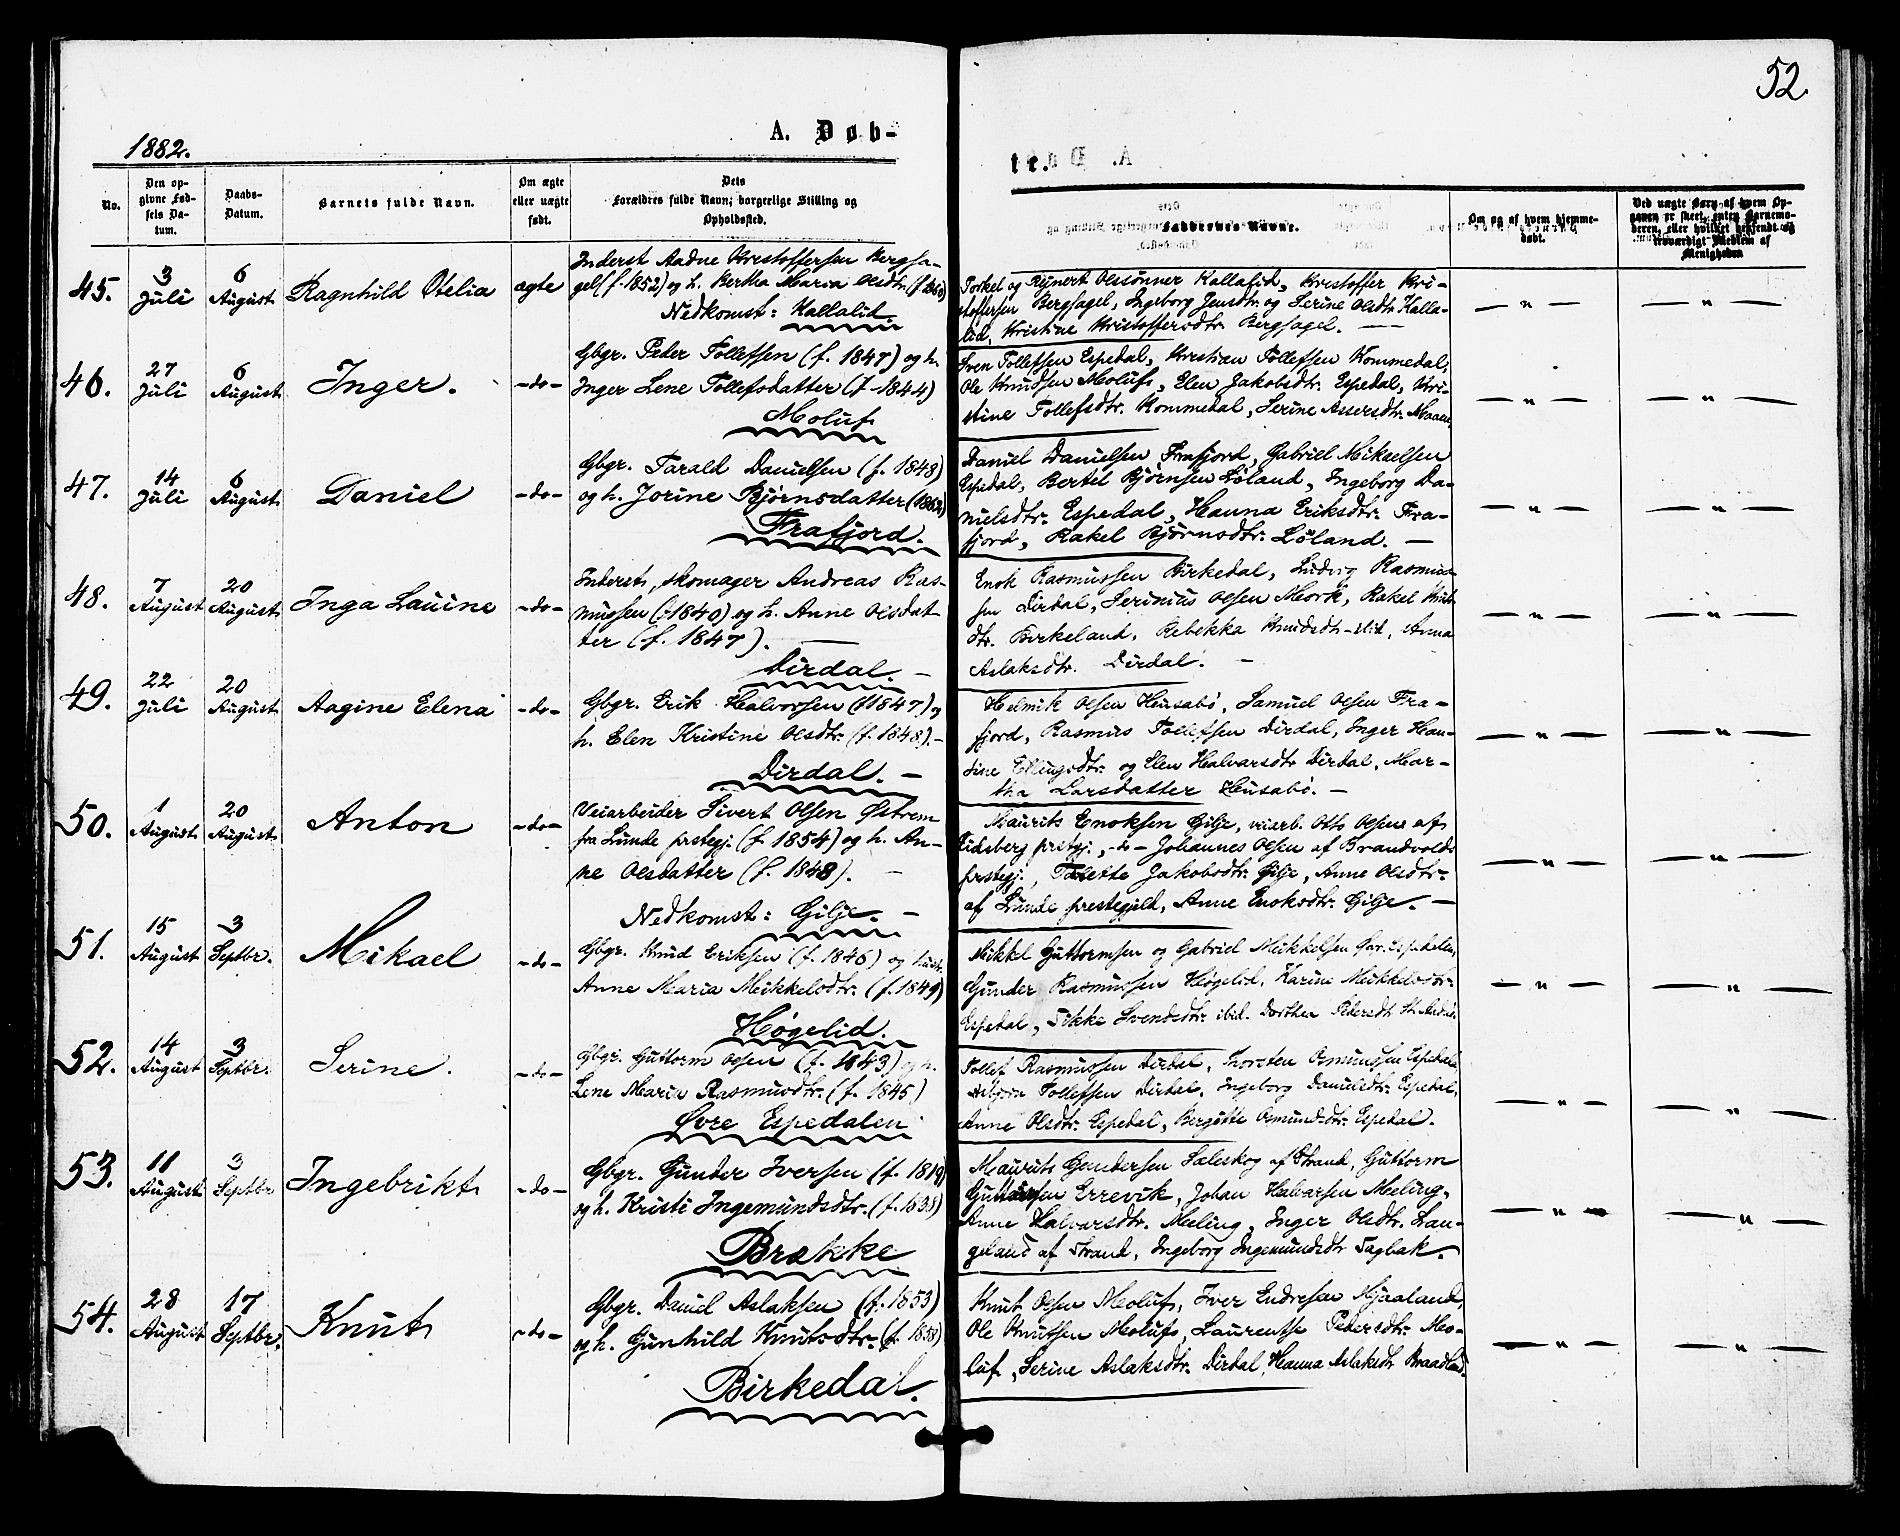 52.
1882.
A. Døb-
te.
No.
Den op-
givne Fød-
sels Da-
tum.
Daabs-
Datum.
Barnets fulde Navn.
Om ægte
eller uægte
født.
Dets
Forældres fulde Navn, borgerlige Stilling og
Opholdssted.
Faddernes Navne.
Om og af hvem hjemme-
døbt.
Ved uægte Børn af hvem Op-
gaven er skeet, enten Barnemo-
deren, eller hvilket bekjendt og
troværdigt Medlem af
Menigheden
45.
3
Juli
6
August
Ragnhild Otelia
ægte
Inderst Aadne Kristoffersen Bergsa-
gel (f. 1852) og h. Bertha Maria Olsdtr.
Nedkomst: Kallalid
Torkel og Rejnert Olssønner Kallalid, Kristoffer Kri-
stoffersen Bergsagel, Ingeborg Jensdtr. og Serine Olsdtr. Kalla-
lid, Kristine Kristoffersdtr. Bergsagel. —
— " —
— " —
46.
27
Juli
6
August
Inger.
-do-
Gbgr. Peder Tollefsen (f. 1847) og h.
Inger Lene Tollefsdatter (f. 1844)
Moluf
Sven Tollefsen Espedal, Kristian Tollefsen Kommedal,
Ole Knudsen Moluf, Elen Jakobsdtr. Espedal, Kri-
stine Tollefsdtr. Kommedal, Serine Assersdtr.
— " —
— " —
47.
14
Juli
6
August
Daniel
-do-
Gbgr. Tarald Danielsen (f. 1848)
og h. Jorine Bjørnsdatter
Frafjord.
Daniel Danielsen Frafjord, Gabriel Mikselsen
Espedal, Bertel Bjørnsen Løland, Ingeborg Da-
nielsdtr. Espedal, Hanna Eriksdtr. Fra-
fjord, Rakel Bjørnsdtr. Løland. —
— " —
— " —
48.
7
August
20
August
Inga Lauine
-do-
Inderst, skomager Andreas Ras-
mussen (f. 1840) og h. Anne Olsdat-
ter (f. 1847). —
Dirdal. —
Enok Rasmussen Birkedal, Ludvig Rasmus-
sen Dirdal, Serinius Olsen Mork, Rakel
dtr. Birkeland, Rebekka Knudsdtr. Anna
Aslaksdtr. Dirdal. —
— " —
— " —
49.
22
Juli
20
August
Aagine Elena
-do-
Gbgr. Erik Halvorsen (f. 1847) og
h. Elen Kristine Olsdtr. (f. 1848). —
Dirdal. —
Helmik Olsen Husabø, Samuel Olsen Fra-
fjord, Rasmus Tollefsen Dirdal, Inger Han-
sine Ellingsdtr. og Elen Halvarsdtr Dirdal, Mar-
tha Larsdatter Husabø. —
— " —
— " —
50.
1
August
20
August
Anton
-do-
Veiarbeider Sivert Olsen Østrem
fra Lunde prstegj. (f. 1854) og h. An-
ne Olsdatter (f. 1848). —
Nedkomst: Gilje. —
Maurits Enoksen Gilje, veiarb. Otto Olsen af
Eidsberg prstgj., -do- Johannes Olsen af Brandvolds
prstegj., Tolette Jakobsdtr. Gilje, Anne Olsdtr.
af Lunde prestegjeld, Anne Enoksdtr. Gilje. —
— " —
— " —
51.
15
August
3
Septbr.
Mikael
-do-
Gbgr. Knud Eriksen (f. 1846) og hust.
Anne Maria Mikkelsdtr. (f. 1849)
Høgelid.
Mikkel Guttormsen og Gabriel Mikkelsen Espedalen,
Gunder Rasmussen Høgelid, Karine Mikkelsdtr.
Espedal, Sikke Svendsdtr. ibid. Dorthea Pedersdtr.
— " —
— " —
52.
14
August
3
Septbr.
Serine.
-do-
Gbgr. Guttorm Olsen (f. 1843) og h.
Lene Maria Rasmusdtr. (f. 1845)
Øvre Espedalen
Tollef Rasmussen Dirdal, Thorsten Osmundsen Espedalen,
Asbjørn Tollefsen Dirdal, Ingeborg Danielsdtr. Espedal,
Anne Olsdtr. Espedal, Bergitte Osmundsdtr. Espedal.
— " —
— " —
53.
11
August
3
Septbr
Ingebrikt
-do-
Gbgr. Gunder Iversen (f. 1819)
og h. Kristi Ingemundsdtr. (f. 1838)
Brekke
Maurits Gundersen Saleskog af Strand, Guttorm
Guttormsen Errevik, Johan Halvarsen Meling,
Anne Halvarsdtr. Meling, Inger Olsdtr. Lan-
geland af Strand, Ingeborg Ingemundsdtr Tagbak.
— " —
— " —
54.
28
August
17
Septbr.
Knut
-do-
Gbgr. Daniel Aslaksen (f. 1853)
og h. Gunhild Knutsdtr. (f. 1858)
Birkedal.
Knut Olsen Moluf, Iver Endresen Mjaaland,
Ole Knutsen Moluf, Laurentse Pedersdtr. Mo-
luf, Serine Aslaksdtr. Dirdal, Hanna Aslaksdtr Braadland.
— " —
— " —